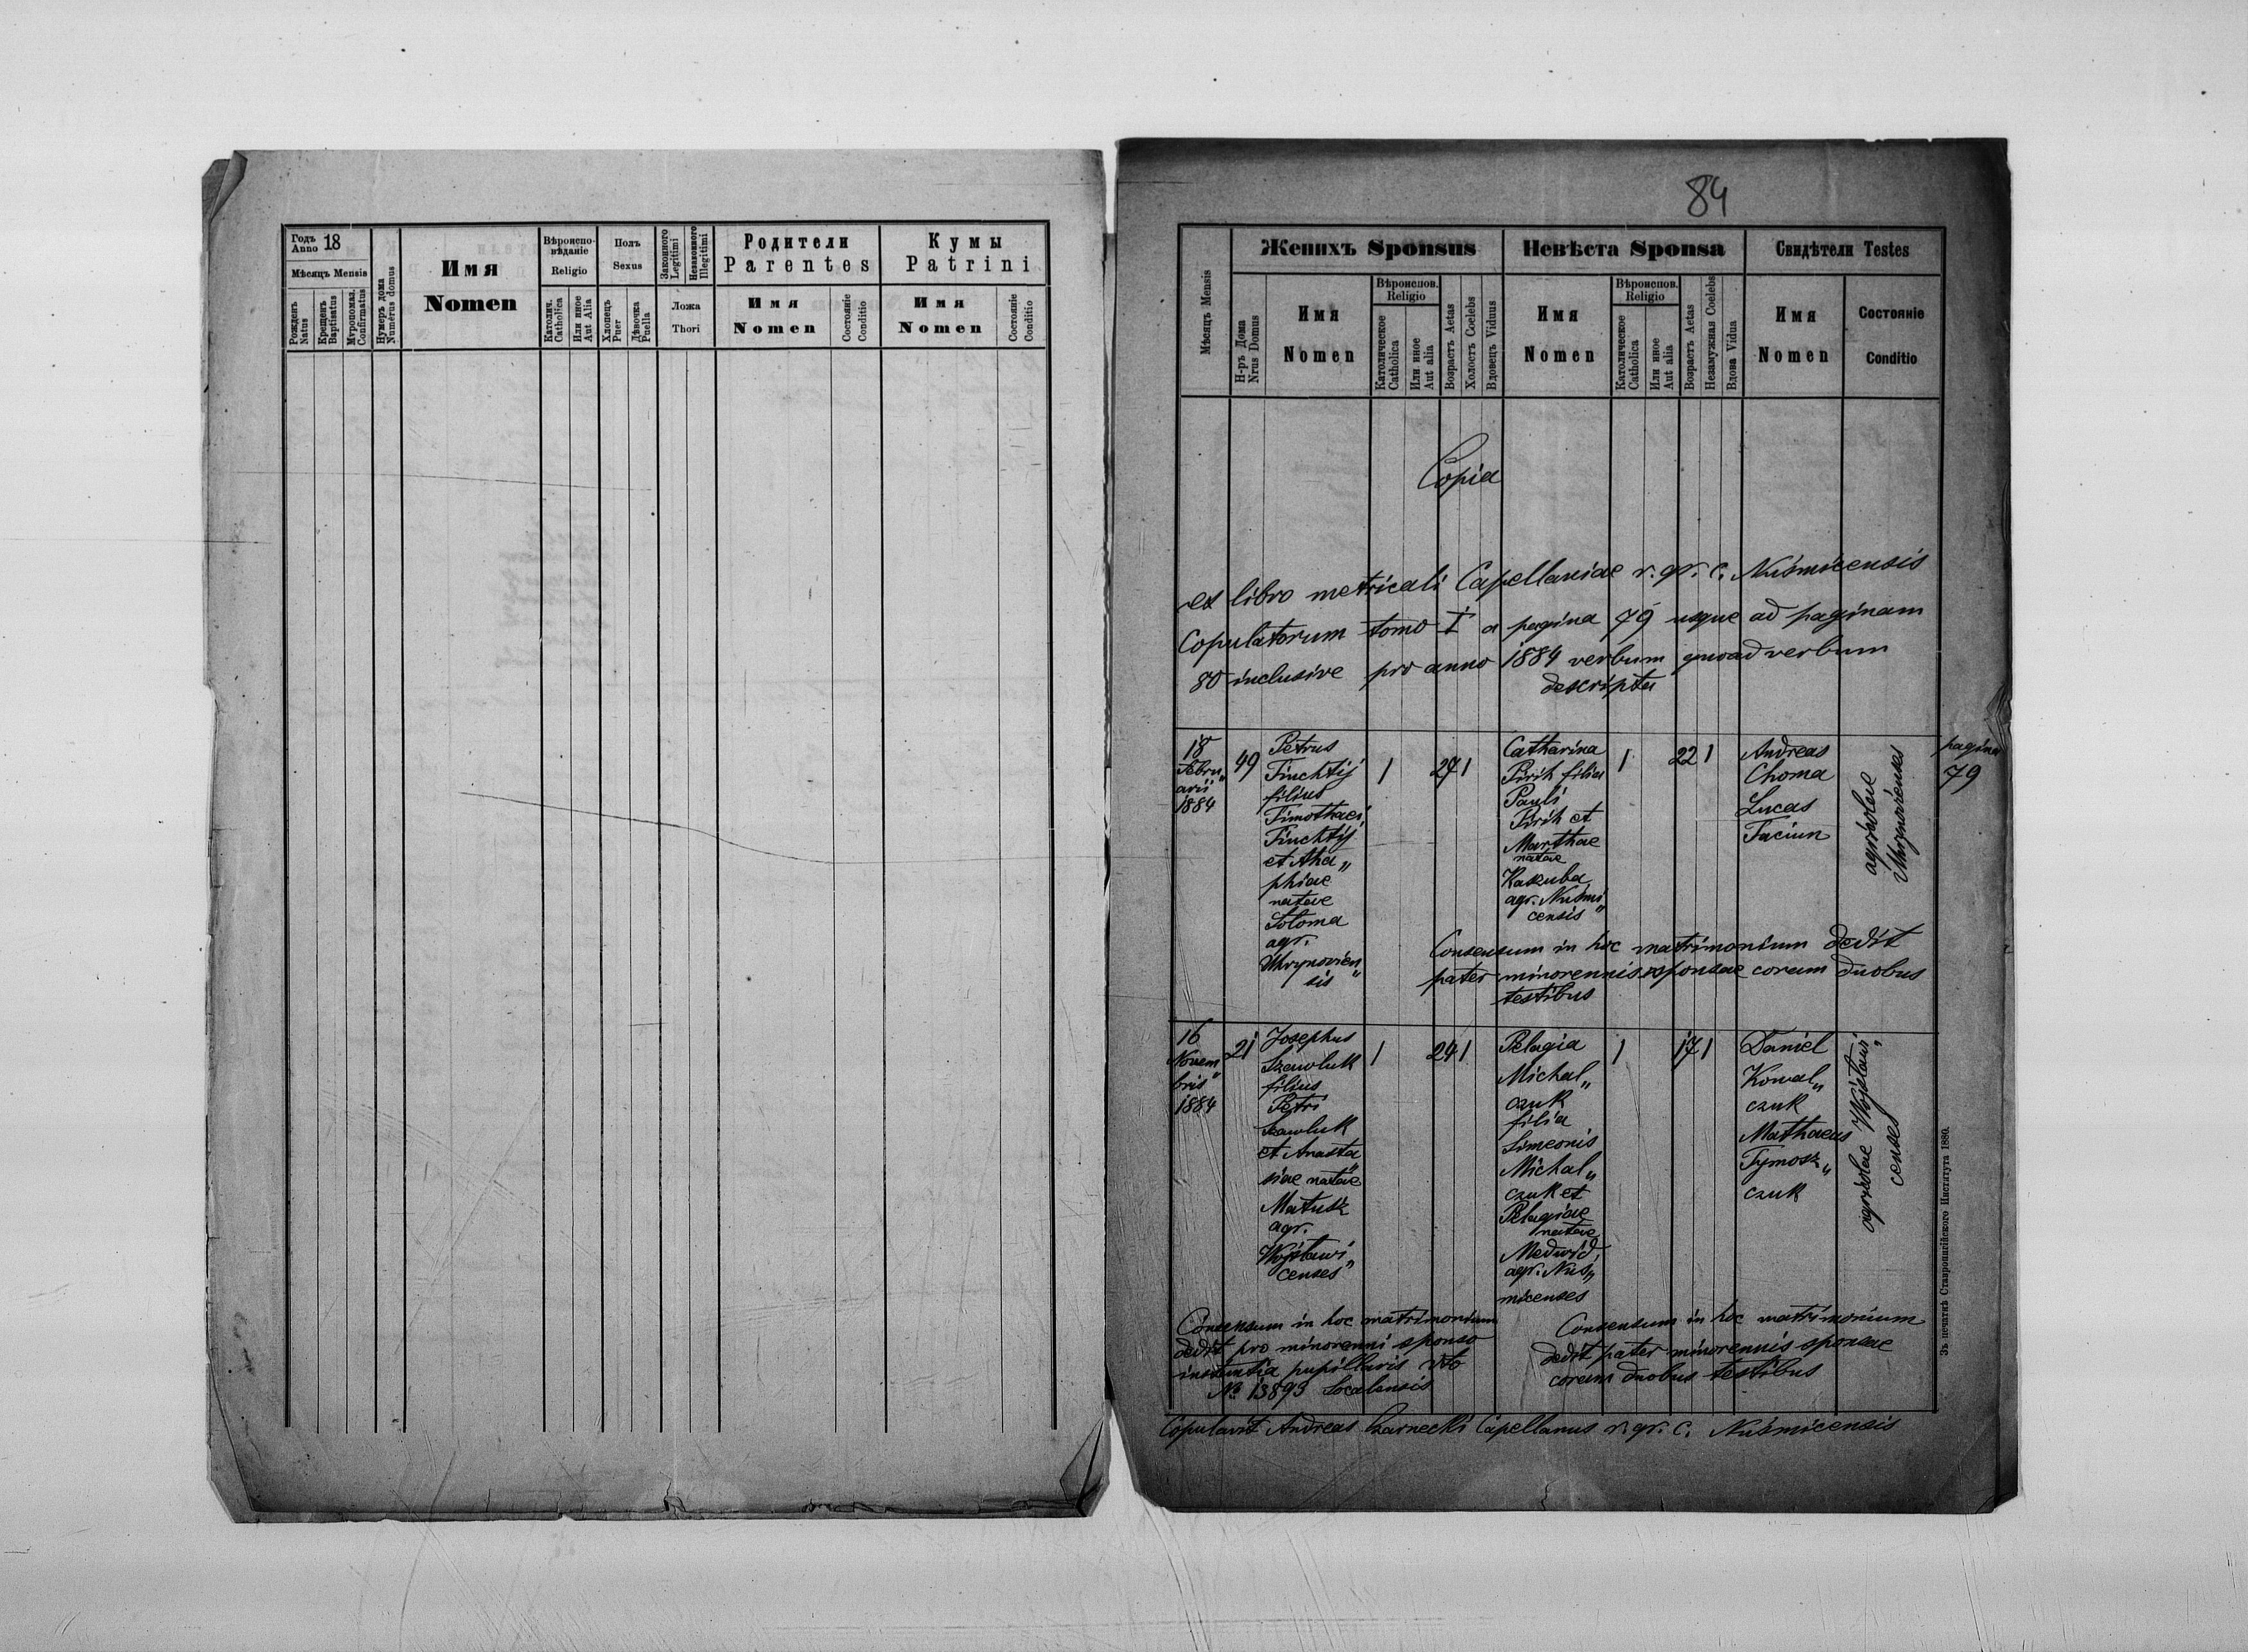 Годъ Anno 18
Мѣсяцъ Mensis
Рожденъ Natus
Крещенъ Baptisatus
Мѵропомаз. Confirmatus
Нумеръ дома Numerus domus
Имя
Nomen
Вѣроиспо-
вѣданіе
Religio
Католич. Catholica
Или иное Aut Alia
Полъ
Sexus
Хлопецъ Puer
Дѣвочка Puella
Законного Legitimi
Незаконного Illegitimi
Ложа
Thori
Родители
Parentes
Имя
Nomen
Состояніе Conditio
Кумы
Patrini
Имя
Nomen
Состояніе Conditio
84
Мѣсяцъ Mensis
Женихъ Sponsus
Н-ръ Дома Nrus Domus
Имя
Nomen
Вѣроиспов.
Religio
Католическое Catholica
Или иное Aut alia
Возрастъ Aetas
Холостъ Coelebs
Вдовецъ Viduus
Невѣста Sponsa
Имя
Nomen
Вѣроиспов.
Religio
Католическое Catholica
Или иное Aut alia
Возрастъ Aetas
Незамужная Coelebs
Вдова Vidua
Свидѣтели Testes
Имя
Nomen
Состояніе
Conditio
Copia
ex libro metricali Capellaniae r. gr. c. Nuśmicensis
Copulatorum tomo I a pagina 79 usque ad paginam
80 inclusive pro anno 1884 verbum quoad verbum
descripta
pagina
79
18
Febru„
arii
1884
49
Petrus
Finchtij
filius
Timothaei
Finchtij
et Aha„
phiae
natae
Soloma
agr.
Uhrynovien„
sis
1
27 1
Catharina
Pirih filia
Pauli
Pirih et
Marthae
natae
Kaszuba
agr. Nuśmi„
censis
1
22 1
Andreas
Choma
Lucas
Faciun
agricolae
Uhrynovienses
Consensum in hoc matrimonium dedit
pater minorennis sponsae coram duobus
testibus
16
Novem„
bris
1884
21
Josephus
Szawluk
filius
Petri
Szawluk
et Anasta„
siae natae
Matusz
agr.
Wojsławi„
censes
1
24 1
Pelagia
Michal„
czuk
filia
Simeonis
Michal„
czuk et
Pelagiae
natae
Medwid,
agr. Nuś„
micenses
1
17 1
Daniel
Kowal„
czuk
Mathaeus
Tymosz„
czuk
agricolae Wojsławi„
censes
Consensum in hoc matrimonium
dedit pro minorenni sponso
instantia pupillaris dto
№ 13893 Socalensis
Consensum in hoc matrimonium
dedit pater minorennis sponsae
coram duobus testibus
Copulavit Andreas Czarnecki Capellanus r. gr. c. Nuśmicensis
Зъ печатнѣ Ставропигійского Института 1880.